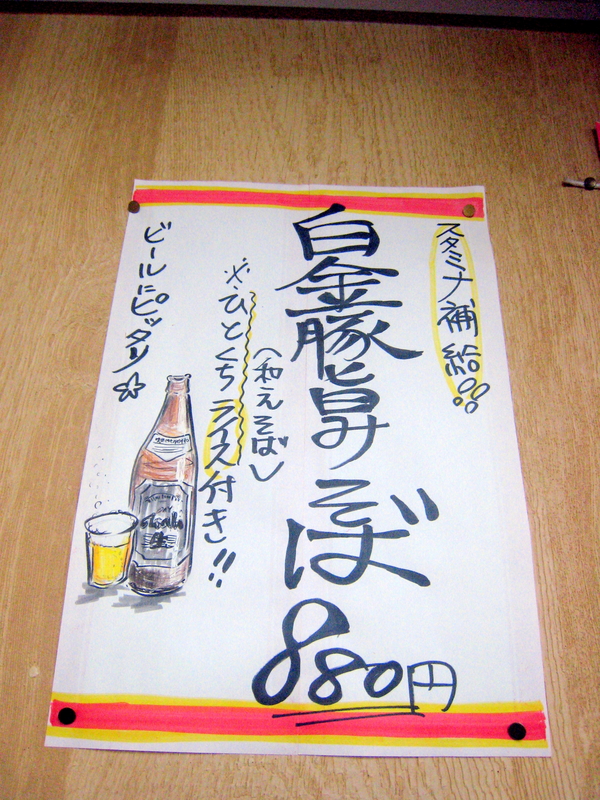 スタミナ補給!!
白金豚旨みそば
880円
(和えそば)
※ひとくちライス付き!!
ビールにピッタリ☆
Asahi
生